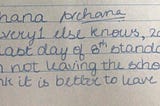 hana Archana
very1 else knows, 20
last day of 8th standa
m not leaving the scho
nk it is better to leave